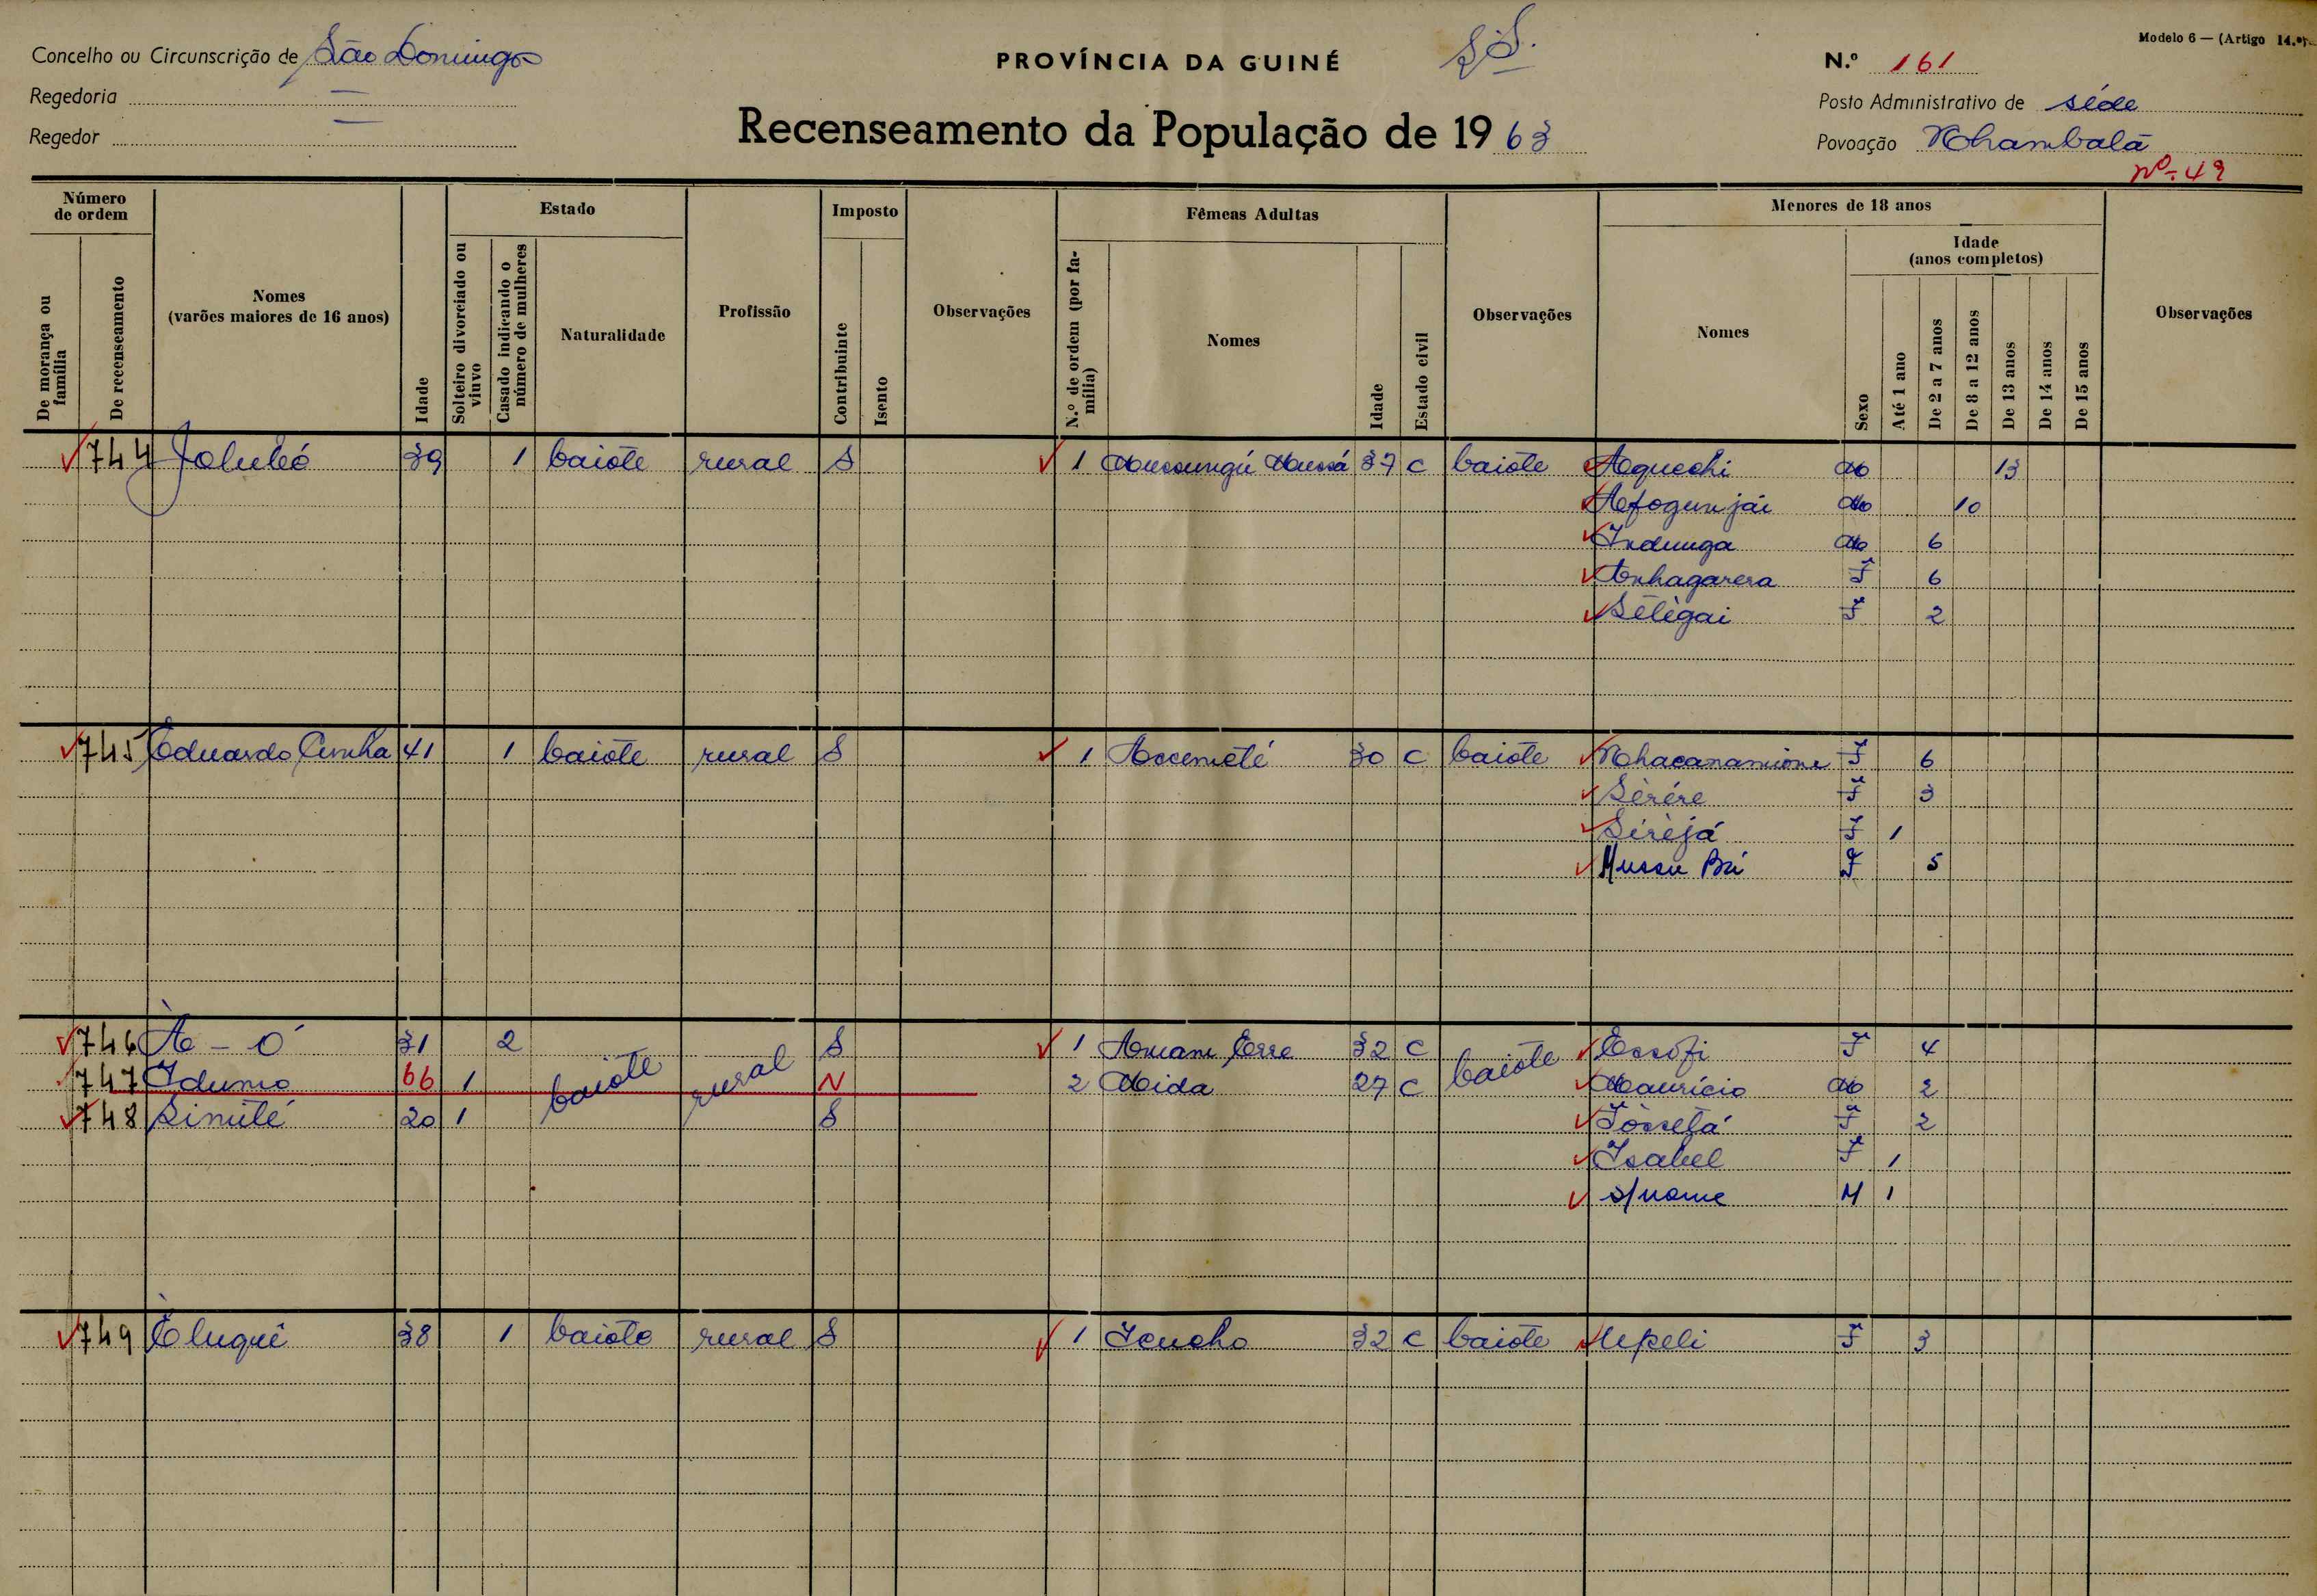 Modelo 6 — (Artigo 14.º)
Concelho ou Circunscrição de São Domingos
PROVÍNCIA DA GUINÉ
N.º 161
Regedoria —
Posto Administrativo de séde
Regedor —
Recenseamento da População de 1963
Povoação Nhambalã
Nº 49
Número de ordem
Estado
Imposto
Fêmeas Adultas
Menores de 18 anos
De morança ou família
De recenseamento
Nomes (varões maiores de 16 anos)
Idade
Solteiro divorciado ou viuvo
Casado indicando o número de mulheres
Naturalidade
Profissão
Contribuinte
Isento
Observações
N.º de ordem (por família)
Nomes
Idade
Estado civil
Observações
Nomes
Sexo
Idade (anos completos)
Até 1 ano
De 2 a 7 anos
De 8 a 12 anos
De 13 anos
De 14 anos
De 15 anos
Observações
744 Jolubó 39 1 baiote rural S 1 Mussungú Mussá 37 c baiote Aquechi M 13
Afogunjai M 10
Indunga M 6
Anhagarera F 6
Sélègai F 2
745 Eduardo Cunha 41 1 baiote rural S 1 30 c baiote Nhacanamione F 6
Sèrére F 3
Sirèjá F 1
Mussu Bú F 5
746 À-Ó 31 2 baiote rural S 1 Amam Esse 32 c baiote Essófi F 4
747 Idumo 66 1 N 2 Mida 27 c Maurício M 2
748 Sinúte 20 1 S Tòssetá F 2
Isabel F 1
s/nome M 1
749 Èluquê 38 1 baiote rural S 1 Icucho 32 c baiote Upeli F 3